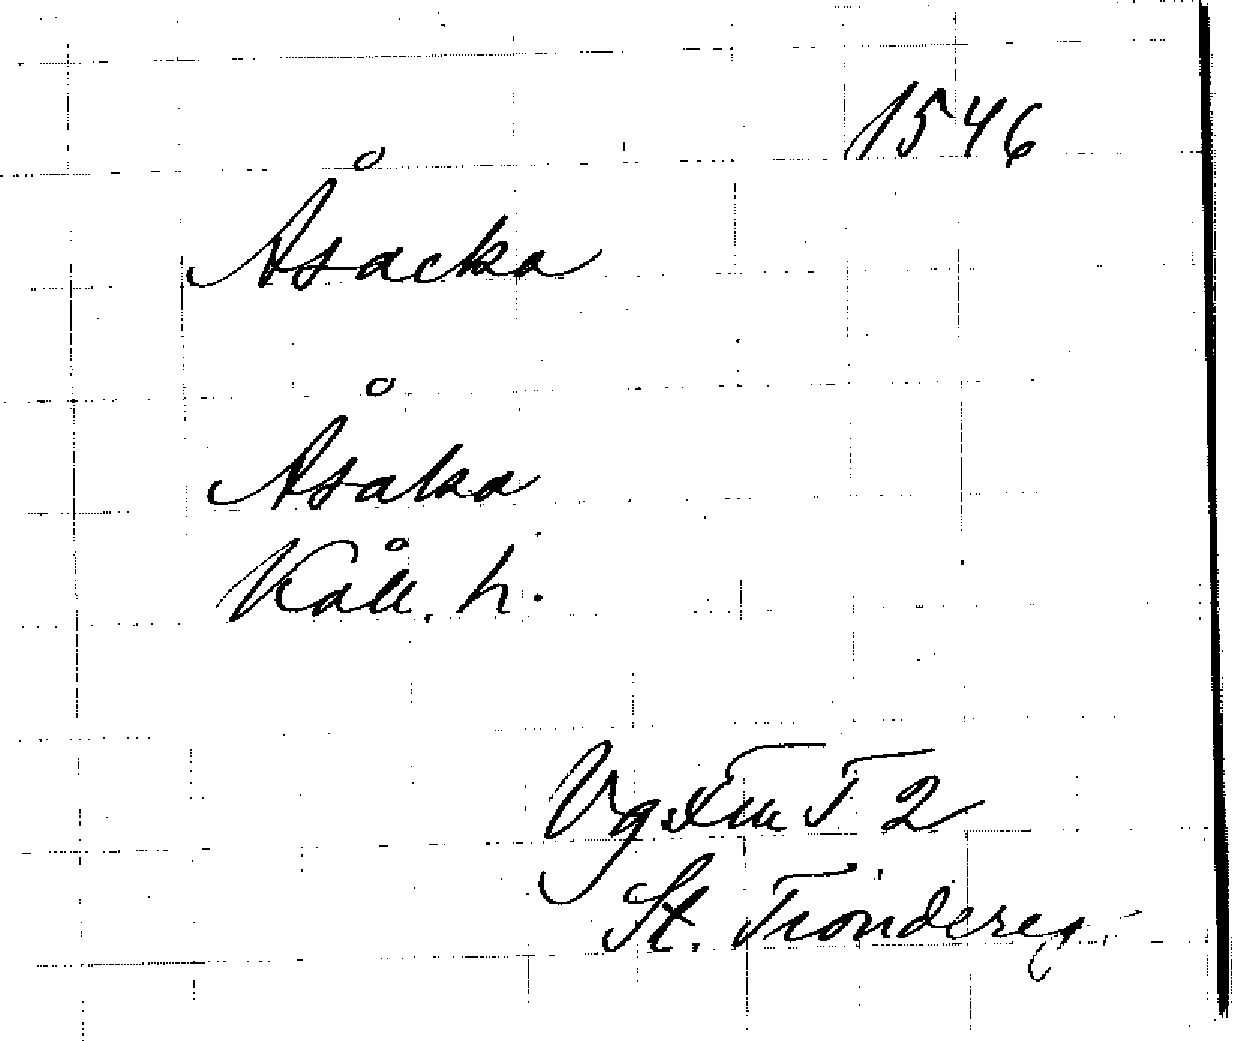 1546
Åsacka
Åsaka
Kåll. h.
Vg
T 2
St. Tiondereg.